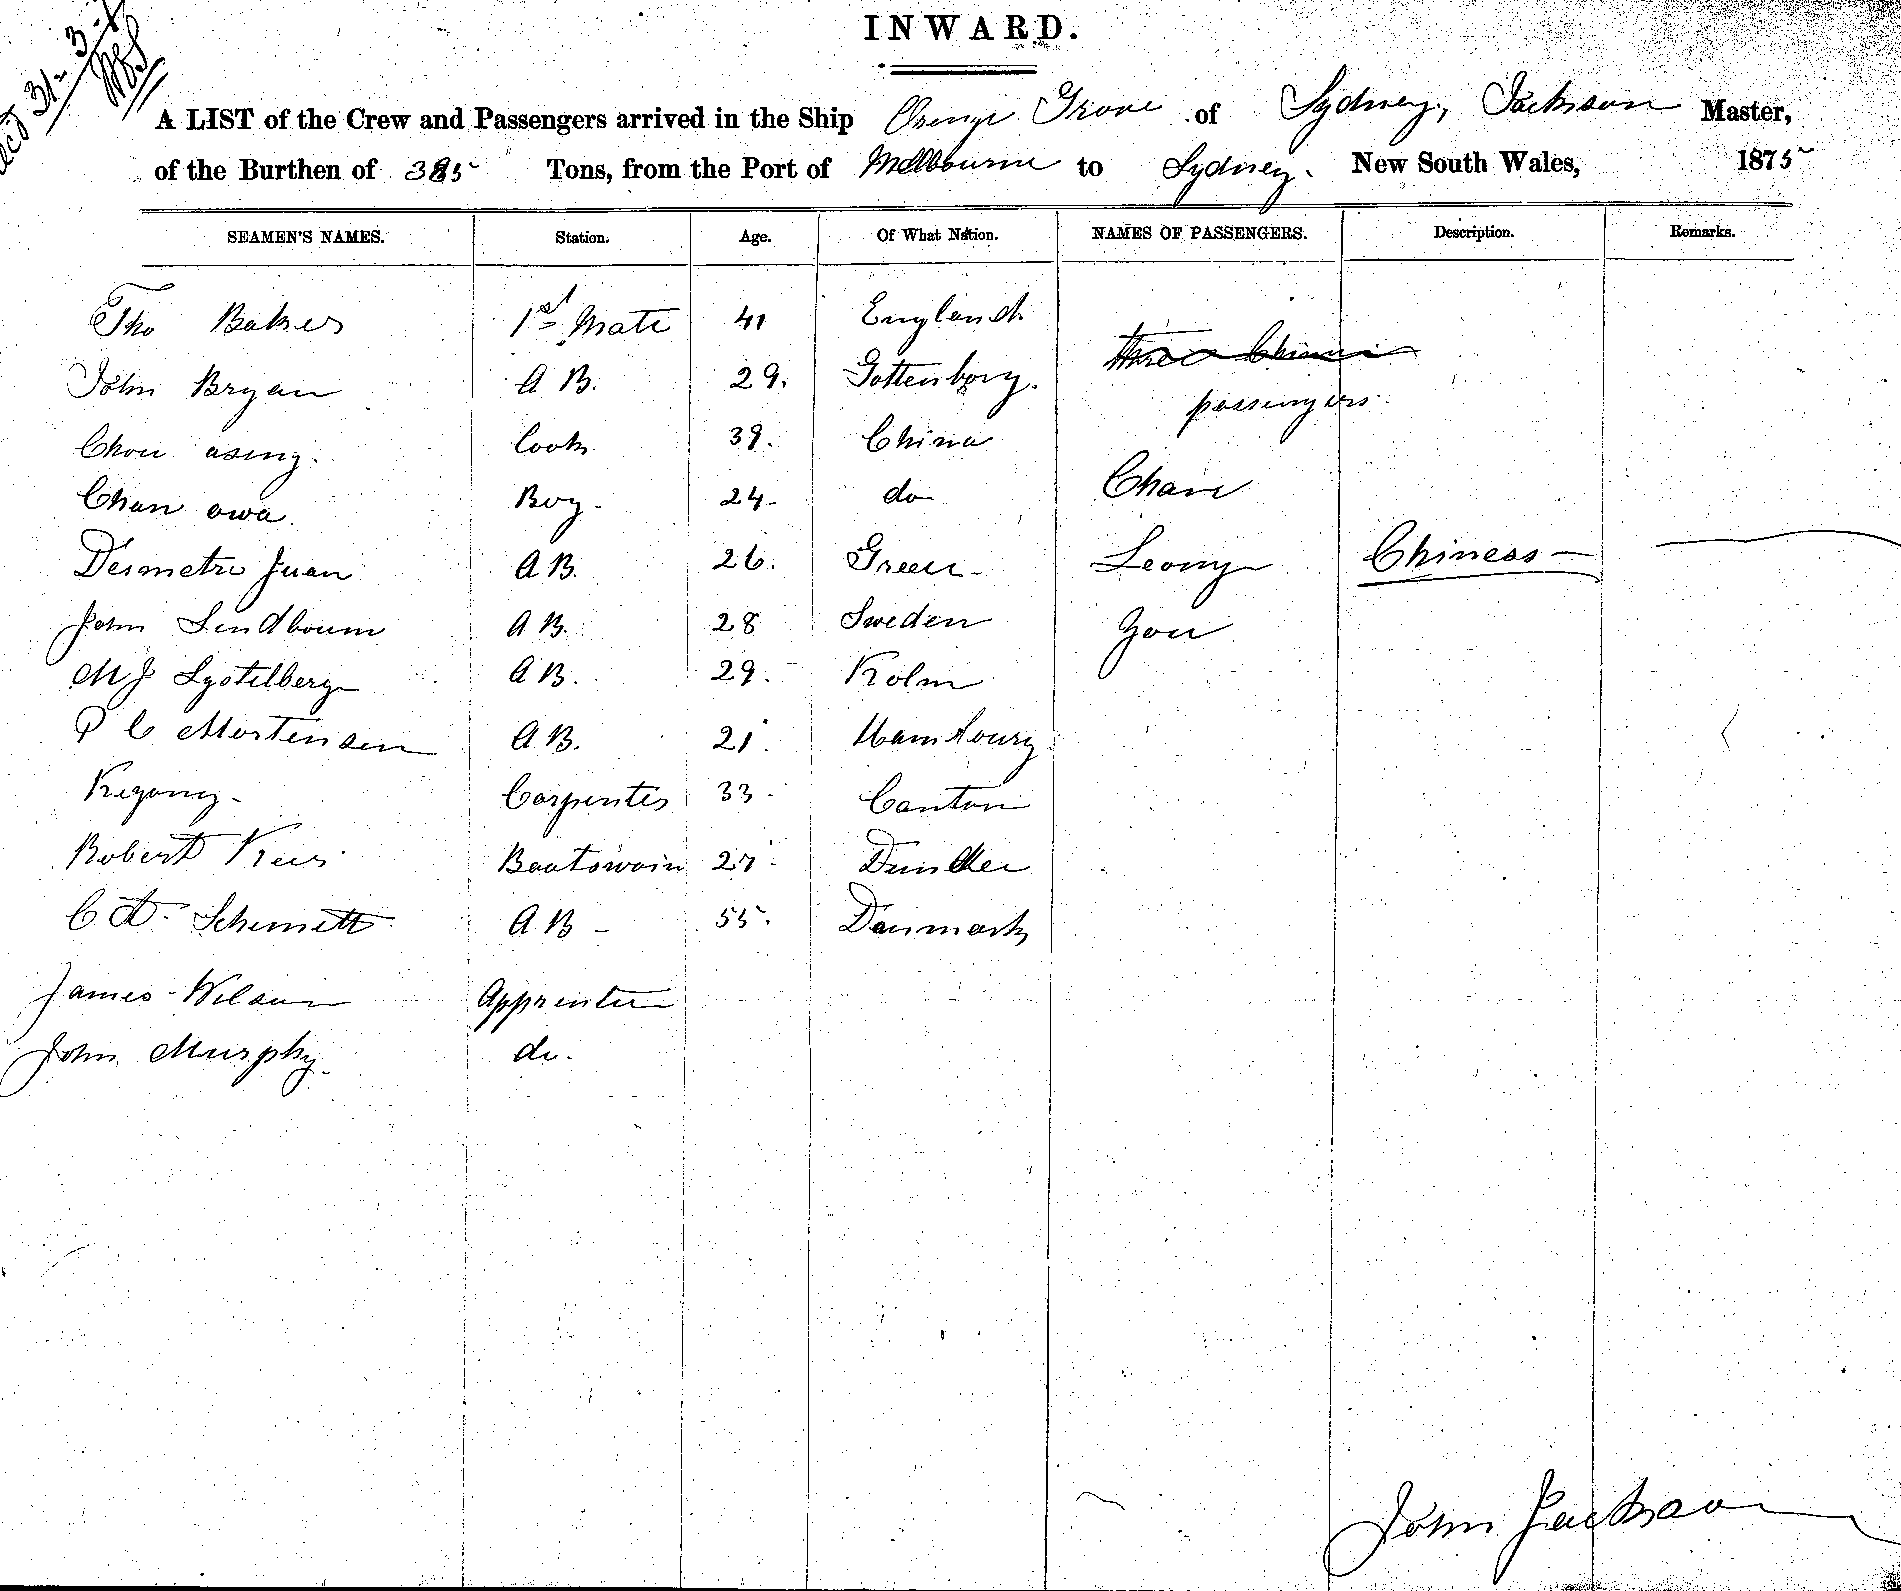 INWARD.
A LIST of the Crew and Passengers arrived in the Ship Orange Grove of Sydney, Jackson Master,
of the Burthen of 385 Tons, from the Port of Melbourne to Sydney. New South Wales, 1875
SEAMEN'S NAMES. Station. Age. Of What Nation. NAMES OF PASSENGERS. Description. Remarks.
Tho Baker 1st Mate 41 England
three Chinese
John Bryan A B. 29. Gottenborg.
passengers.
Chou asing. Cook 39. China
Chan awa. Boy. 24 do Chan
Desmetre Juan A B. 26. Greece Leong Chineas
John Lindboum A B. 28 Sweden You
M J A B. 29. Kolm
P C Mortensen A B. 21 Hambourg
Kegong Carpenter 33 Canton
Robert Boatswain 27 Dundee
C A B 55. Denmark
James Wilson Apprentice
John Murphy do.
John Jackson